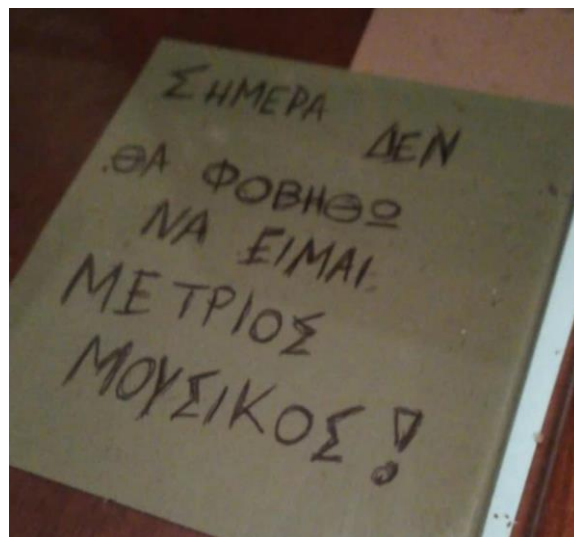 ΣΗΜΕΡΑ ΔΕΝ
ΘΑ ΦΟΒΗΘΩ
ΝΑ ΕΙΜΑΙ
ΜΕΤΡΙΟΣ
ΜΟΥΣΙΚΟΣ!